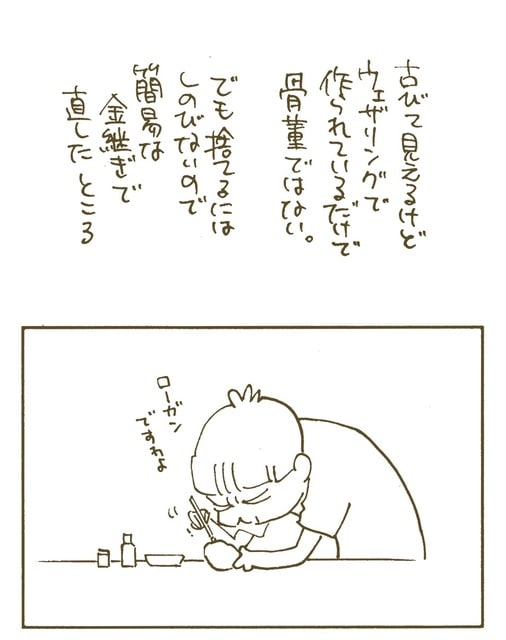 古びて見えるけど
ウェザリングで
作られているだけで
骨董ではない。
でも捨てるには
しのびないので
簡易な
金継ぎで
直したところ
ローガン
ですわよ